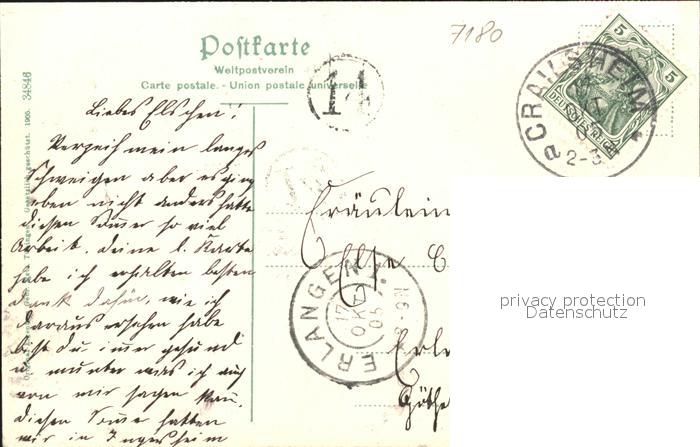 7180
Postkarte
Weltpostverein
Carte postale. - Union postale universelle
14
5 5
DEUTSCHES REICH
CRAILSHEIM
2-3
34846
geschützt. 1905.
Liebes Elschen!
Verzeih mein langes
Schweigen aber es ging
eben nicht anders hatte
diesen Sommer so viel
Arbeit. Deine l. Karte
habe ich erhalten besten
Dank dafür, wie ich
daraus ersehen habe
bist Du immer gesund
u munter was ich auch
von mir sagen kann.
Diesen Somme hatten
wir in Ingersheim
Fräulein
Else
ERLANGEN
17
OKT
05
privacy protection
Datenschutz